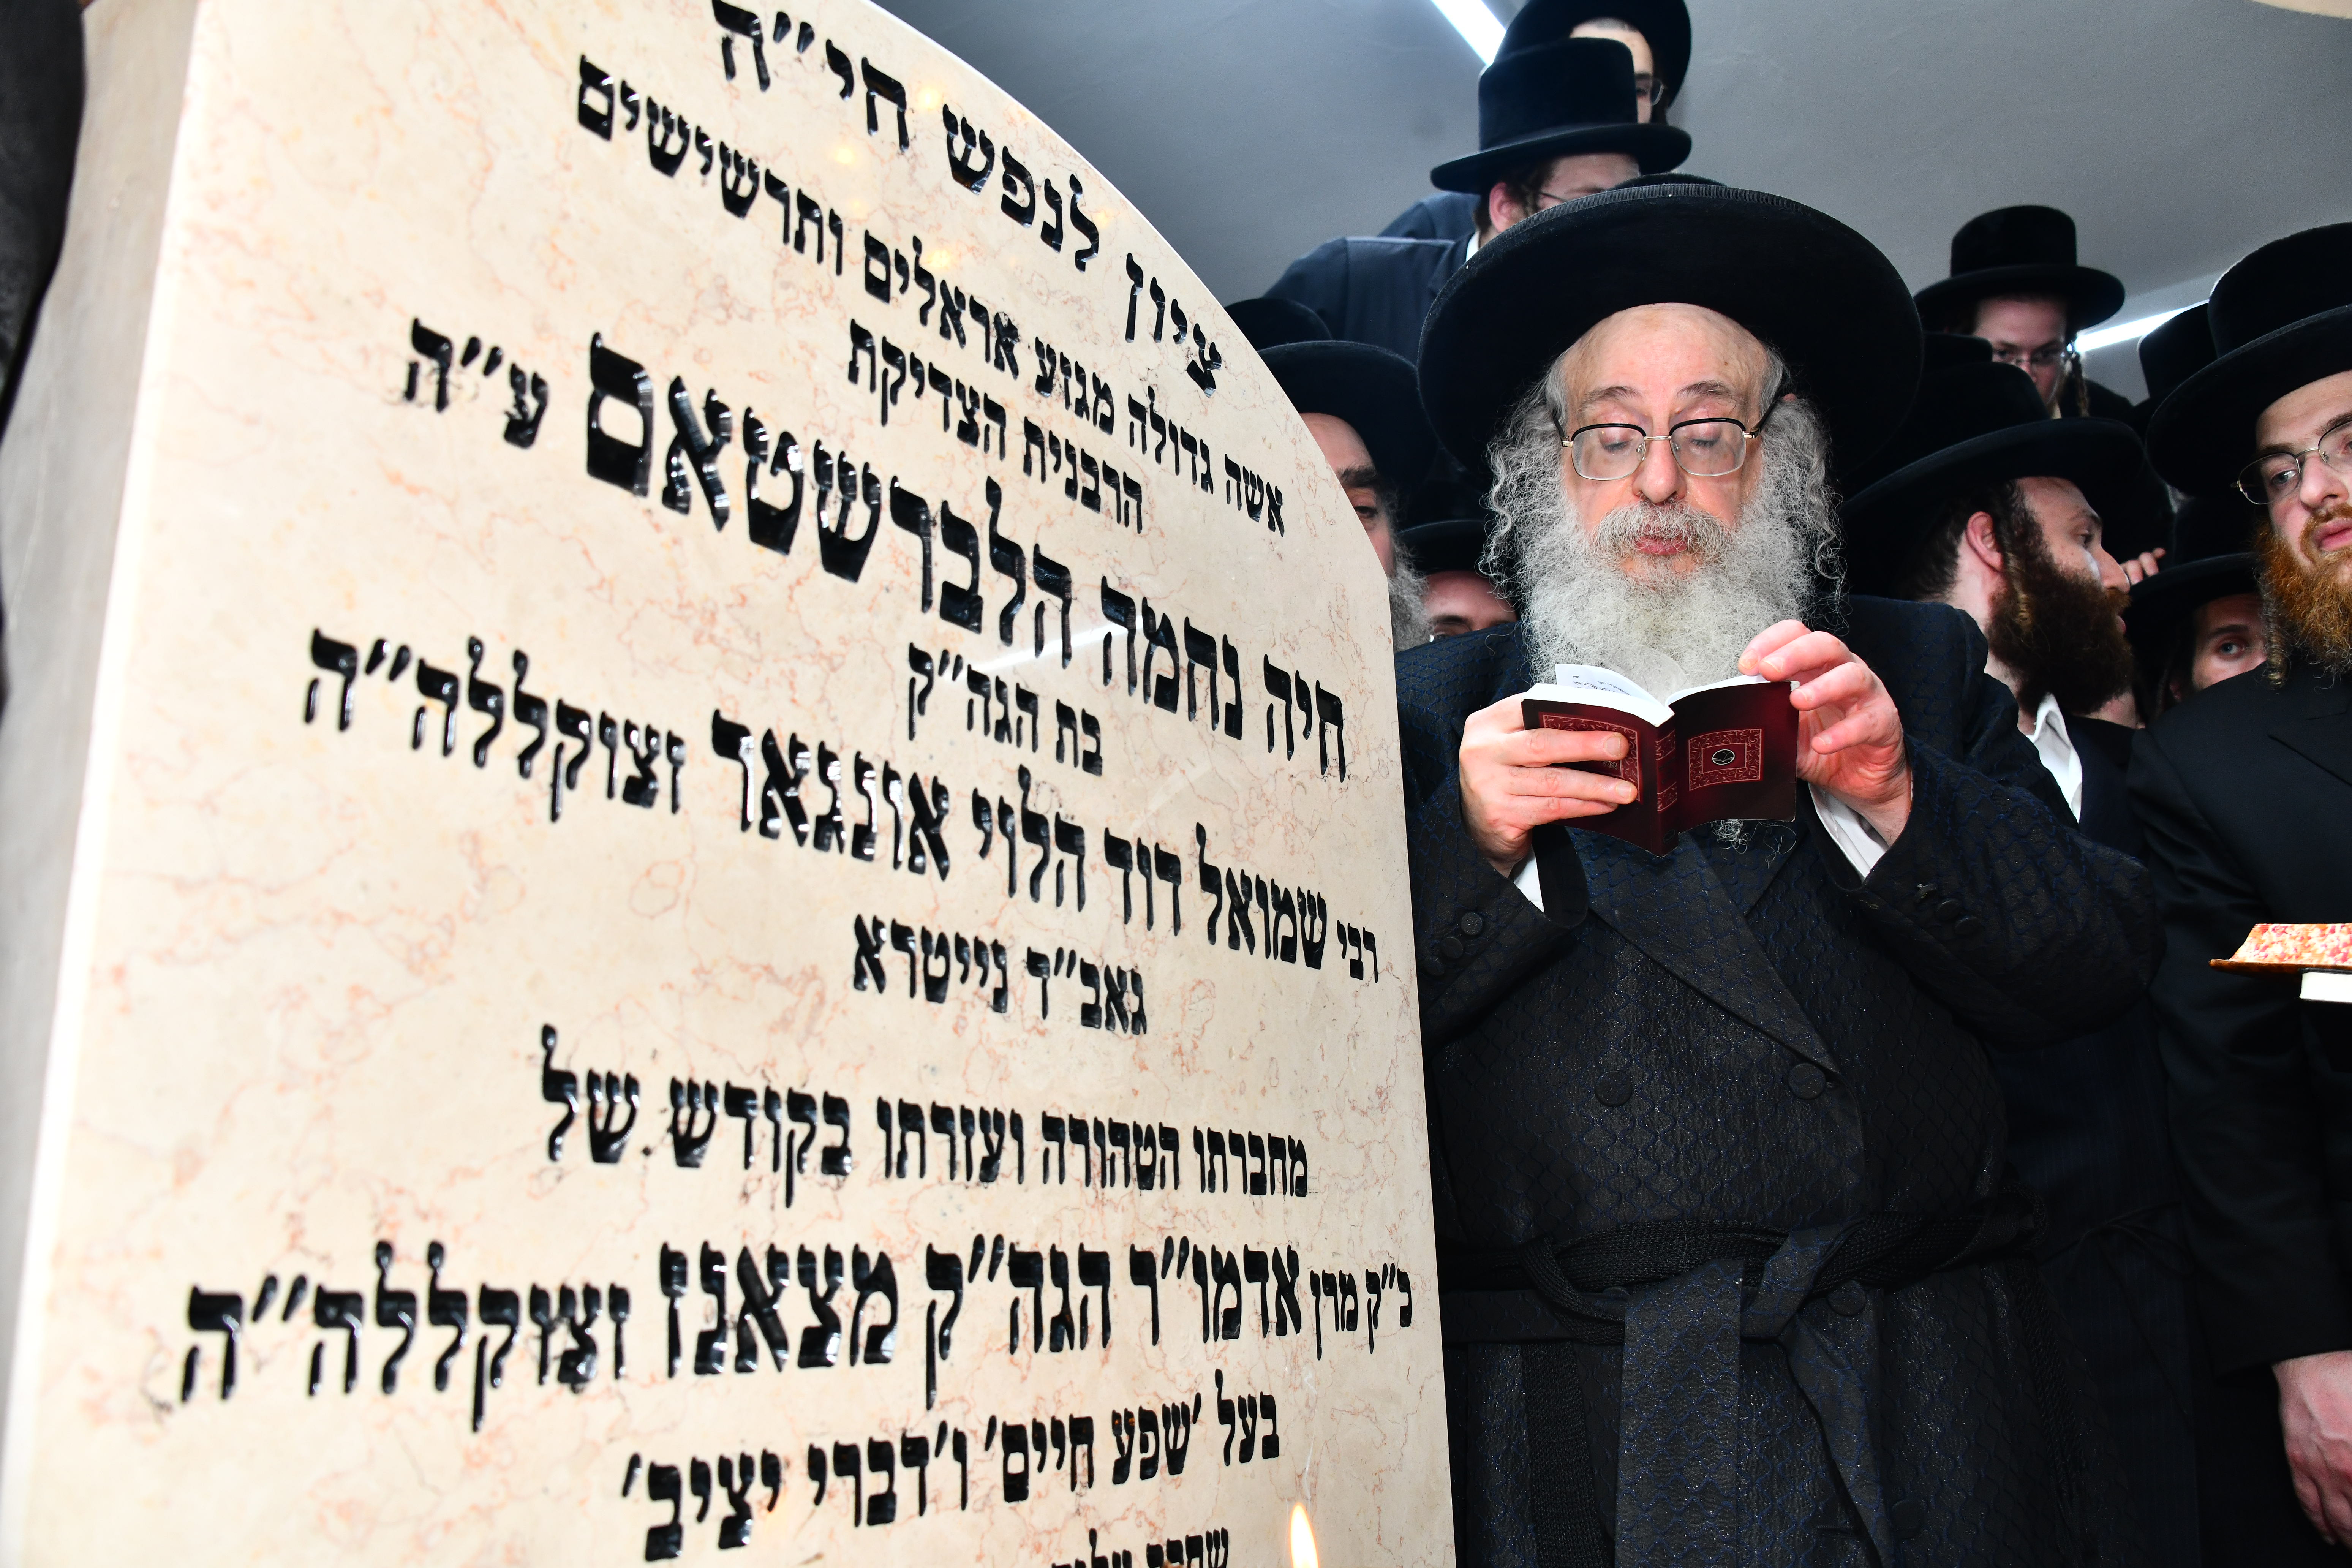 ציון לנפש חי״ה
אשה גדולה מגזע אראלים ותרשישים
הרבנית הצדיקת
חיה נחמה הלברשטאם ע״ה
בת הגה״ק
רבי שמואל דוד הלוי אונגאר זצוקללה״ה
גאב״ד נייטרא
מחברתו הטהורה ועזרתו בקודש של
כ״ק מרן אדמו״ר הגה״ק מצאנז זצוקללה״ה
בעל ׳שפע חיים׳ ו׳דברי יציב׳